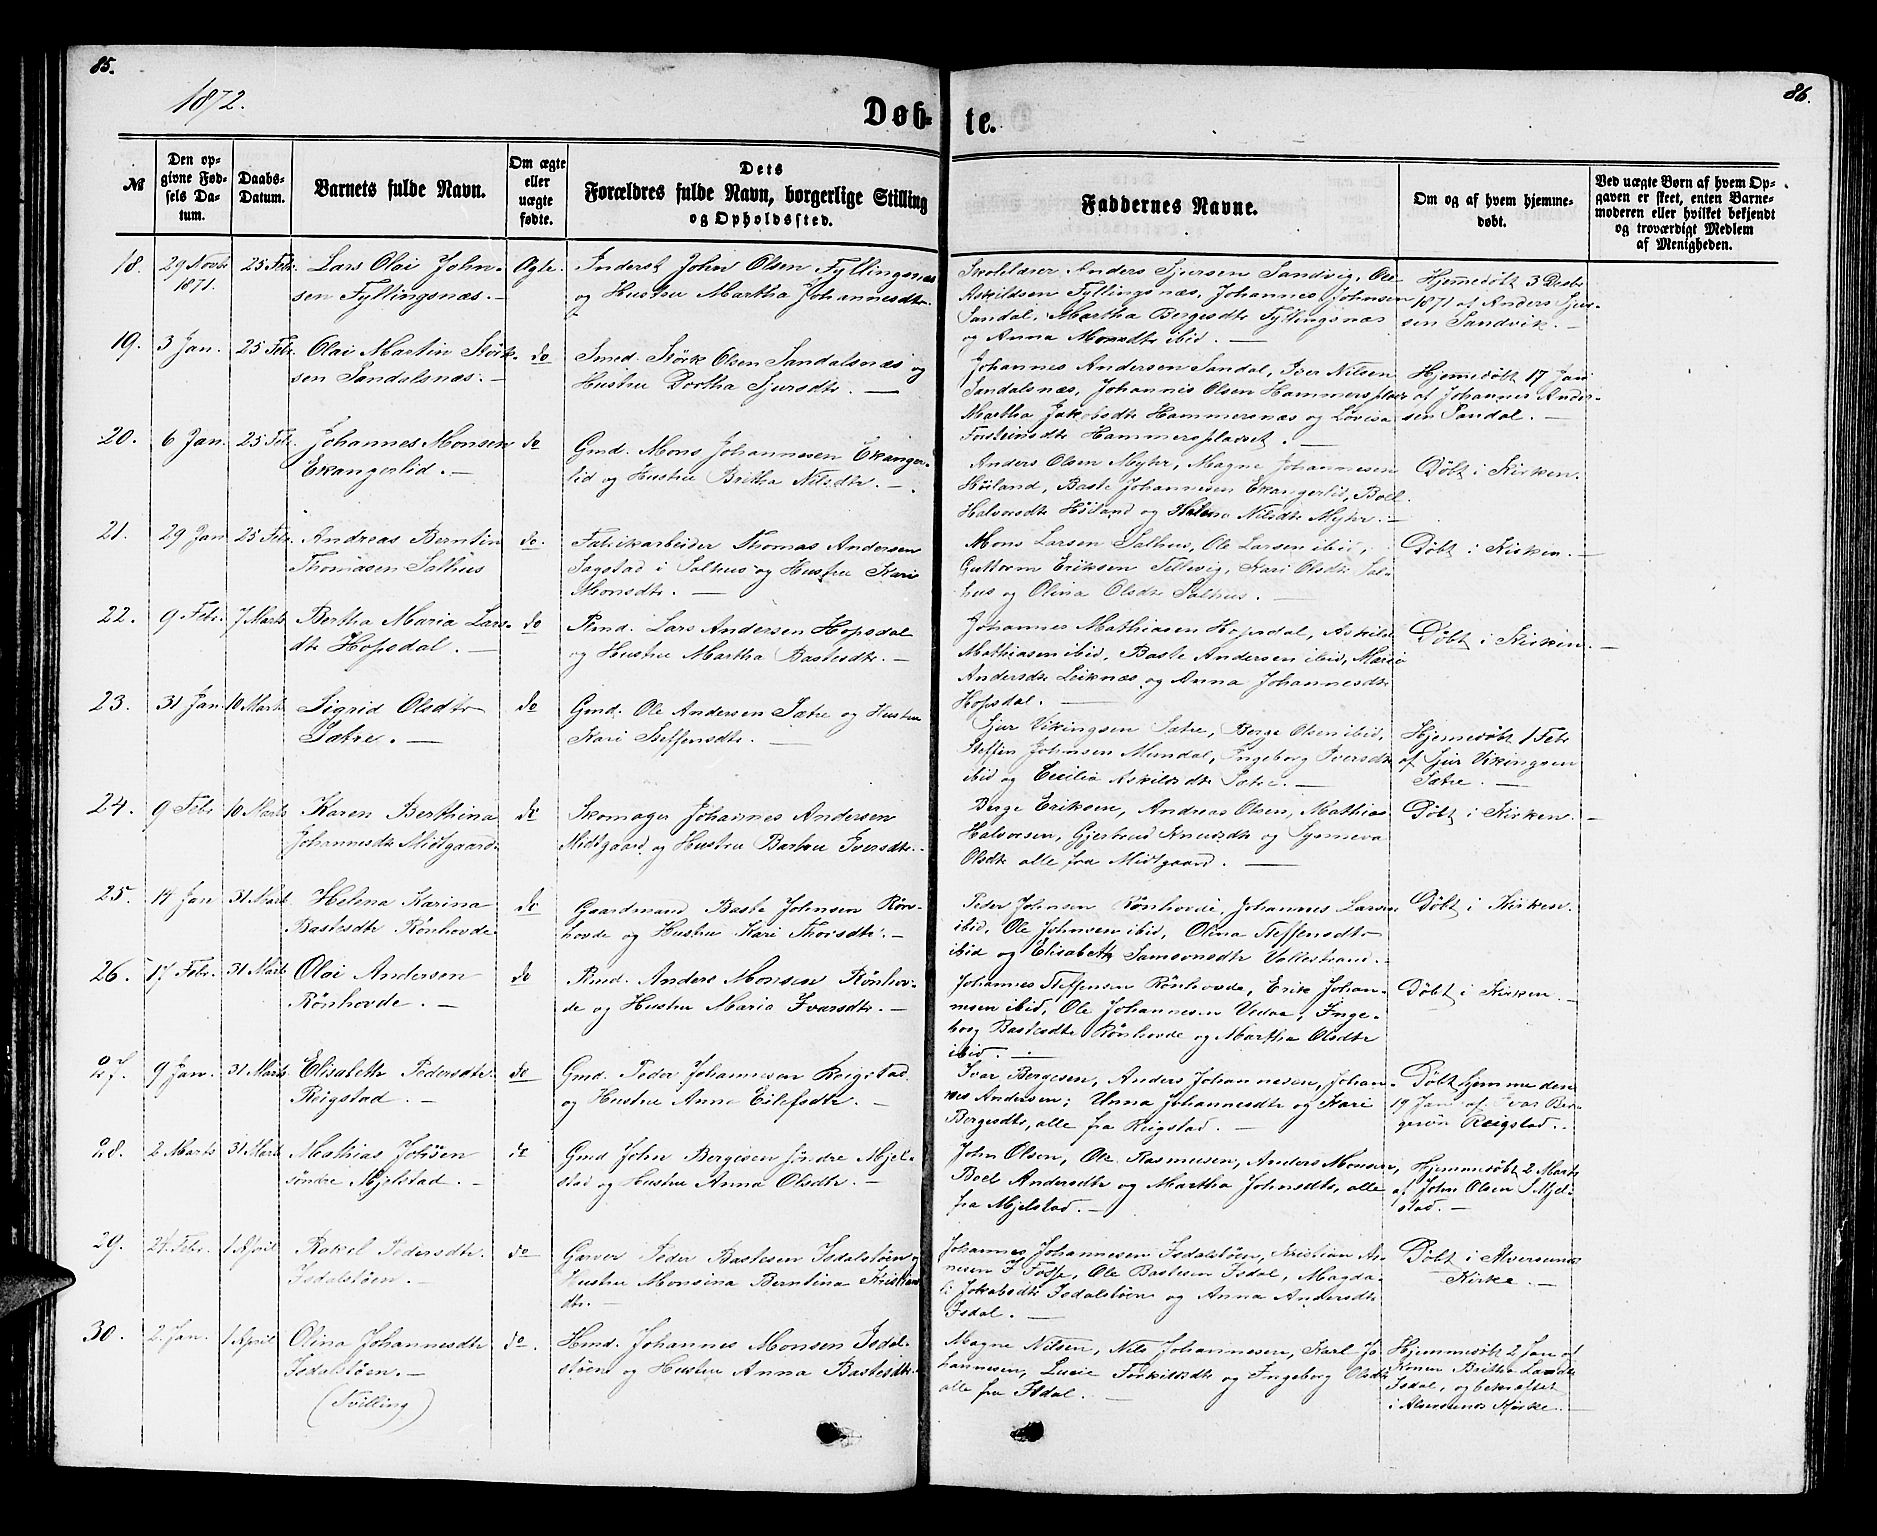 85.
86.
1872.
Døb-
te.
№
Den op-
givne Fød-
sels Da-
tum.
Daabs-
Datum.
Barnets fulde Navn.
Om ægte
eller
uægte
fødte.
Dets
Forældres fulde Navn, borgerlige Stilling
og Opholdssted.
Faddernes Navne.
Om og af hvem hjemme-
døbt.
Ved uægte Børn af hvem Op-
gaven er skeet, enten Barne-
moderen eller hvilket bekjendt
og troværdigt Medlem
af Menigheden.
18.
29 Novbr
1871.
25 Febr.
Lars Olai John-
sen Fyllingsnæs. —
Ægte.
Inderst John Olsen Fyllingsnæs
og Hustru Martha Johannesdtr.
Skolelærer Anders Sjursen Sandvig, Ole
Askildsen Fyllingsnæs, Johannes Johnsen
Sandal, Martha Bergesdtr Fyllingsnæs
og Anna Monsdtr ibid. —
Hjemmedøbt 3 Decbr
1871 af Anders Sjur-
sen Sandvik. —
19.
3 Jan.
25 Febr.
Olai Martin Størk-
sen Sandalsnæs. —
do
Smed. Størk Olsen Sandalsnæs og
Hustru Dortha Sjursdtr. —
Johannes Andersen Sandal, Iver Nilsen
Sandalsnæs, Johannes Olsen Hammersplads
Martha Jakobsdtr Hammersnæs og Lovisa
Torsteinsdtr Hammerspladset. —
Hjemmedøbt 17 Jan
af Johannes Ander-
sen Sandal. —
20.
6 Jan.
25 Febr.
Johannes Monsen
Ekangerlid. —
do
Gmd. Mons Johannesen Ekanger-
lid og Hustru Britha Nilsdtr. —
Anders Olsen Myhr, Magne Johannesen
Høiland, Baste Johannesen Ekangerlid, Boel
Halvorsdtr Høiland og Helena Nilsdtr Myhr. —
Døbt i Kirken.
21.
29 Jan
25 Febr.
Andreas Berntin
Thomasen Salhus
do.
Fabrikarbeider Thomas Andersen
Sagstad i Salhus og Hustru Kari
Monsdtr. —
Mons Larsen Salhus, Ole Larsen ibid,
Guttorm Eriksen Tellevig, Kari Olsdtr Sal-
hus og Olina Olsdtr Salhus. —
Døbt i Kirken. —
22.
9 Febr
7 Marts
Bertha Maria Lars-
dtr Hopsdal. —
do
Pmd. Lars Andersen Hopsdal
og Hustru Martha Bastesdtr. —
Johannes Mathiasen Hopsdal, Askild
Mathiasen ibid, Baste Andersen ibid, Maria
Andersdtr Leiknæs og Anna Johannesdtr
Hopsdal. —
Døbt i Kirken. —
23.
31 Jan
10 Marts
Sigrid Olsdtr
Sætre. —
do
Gmd. Ole Andersen Sætre og Hustru
Kari Steffensdtr. —
Sjur Vikingsen Sætre, Berge Olsen ibid,
Steffen Johnsen Mundal, Ingeborg Iversdtr
ibid og Cecilia Askildsdtr Sætre. —
Hjemmedøbt 1 Febr
af Sjur Vikingsen
Sætre. —
24.
9 Febr
10 Marts
Karen Berthina
Johannesdtr Midtgaard.
do
Skomager Johannes Andersen
Midtgaard og Hustru Barbra Iversdtr. —
Berge Eriksen, Andreas Olsen, Mathias
Halvorsen, Gjertrud Knudsdtr og Synneva
Olsdtr alle fra Midtgaard. —
Døbt i Kirken. —
25.
14 Jan
31 Marts
Helena Karina
Bastesdtr Rönhovde.
do
Gaardmand Baste Johnsen Rön-
hovde og Hustru Kari Thorsdtr. —
Peder Johnsen Rönhovde, Johannes Larsen
ibid, Ole Johnsen ibid, Olina Steffensdtr
ibid og Elisabeth Samsonsdtr Vallestrand. —
Døbt i Kirken.
26.
17 Febr.
31 Marts
Olai Andersen
Rönhovde. —
do
Pmd. Anders Monsen Rönhov-
de og Hustru Maria Ivarsdtr. —
Johannes Steffensen Rönhovde, Erik Johan-
nesen ibid, Ole Johannesen Vedaa, Inge-
borg Bastesdtr Rönhovde og Martha Olsdtr
ibid. —
Døbt i Kirken. —
27.
9 Jan.
31 Marts
Elisabeth Pedersdtr
Reigstad. —
do
Gmd. Peder Johannesen Reigstad
og Hustru Anna Eilefsdtr. —
Ivar Bergesen, Anders Johannesen, Johan-
nes Andersen, Unna Johannesdtr og Kari
Bergesdtr, alle fra Reigstad. —
Døbt hjemme den
19 Jan af Ivar Ber-
gesön Reigstad.
28.
2 Marts
31 Marts
Mathias Johsen
söndre Mjelstad. —
do
Gmd John Bergesen söndre Mjel-
stad og Hustru Anna Olsdtr. —
John Olsen, Ole Rasmusen, Anders Monsen,
Boel Andersdtr og Martha Johnsdtr, alle
fra Mjelstad. —
Hjemmedøbt 2 Marts
af John Olsen S Mjel-
stad. —
29.
24 Febr.
1 April
Rakel Pedersdtr.
Isdalstøen. —
do
Garver Peder Bastesen Isdalstøen og
Hustru Monsina Berntina Kristians
dtr. —
Johannes Johannesen Isdalstøen, Kristian Ar-
nesen I Fosse, Ole Bastesen Isdal, Magda-
li Jakobsdtr Isdalstøen og Anna Andersdtr
Isdal. —
Døbt i Alversunds
Kirke. —
30.
2 Jan.
1 April
Olina Johannesdtr
Isdalstøen. —
(Tvilling)
do.
Hmd. Johannes Monsen Isdal-
støen og Hustru Anna Bastesdtr.
Magne Nilsen, Nils Johannesen, Karl Jo-
hannesen, Lucie Torkildsdtr og Ingeborg Olsdtr
alle fra Isdal. —
Hjemmedøbt 2 Jan af
Konen Britha Larsdtr
Isdal, og bekræftet
i Alversunds Kirke. —